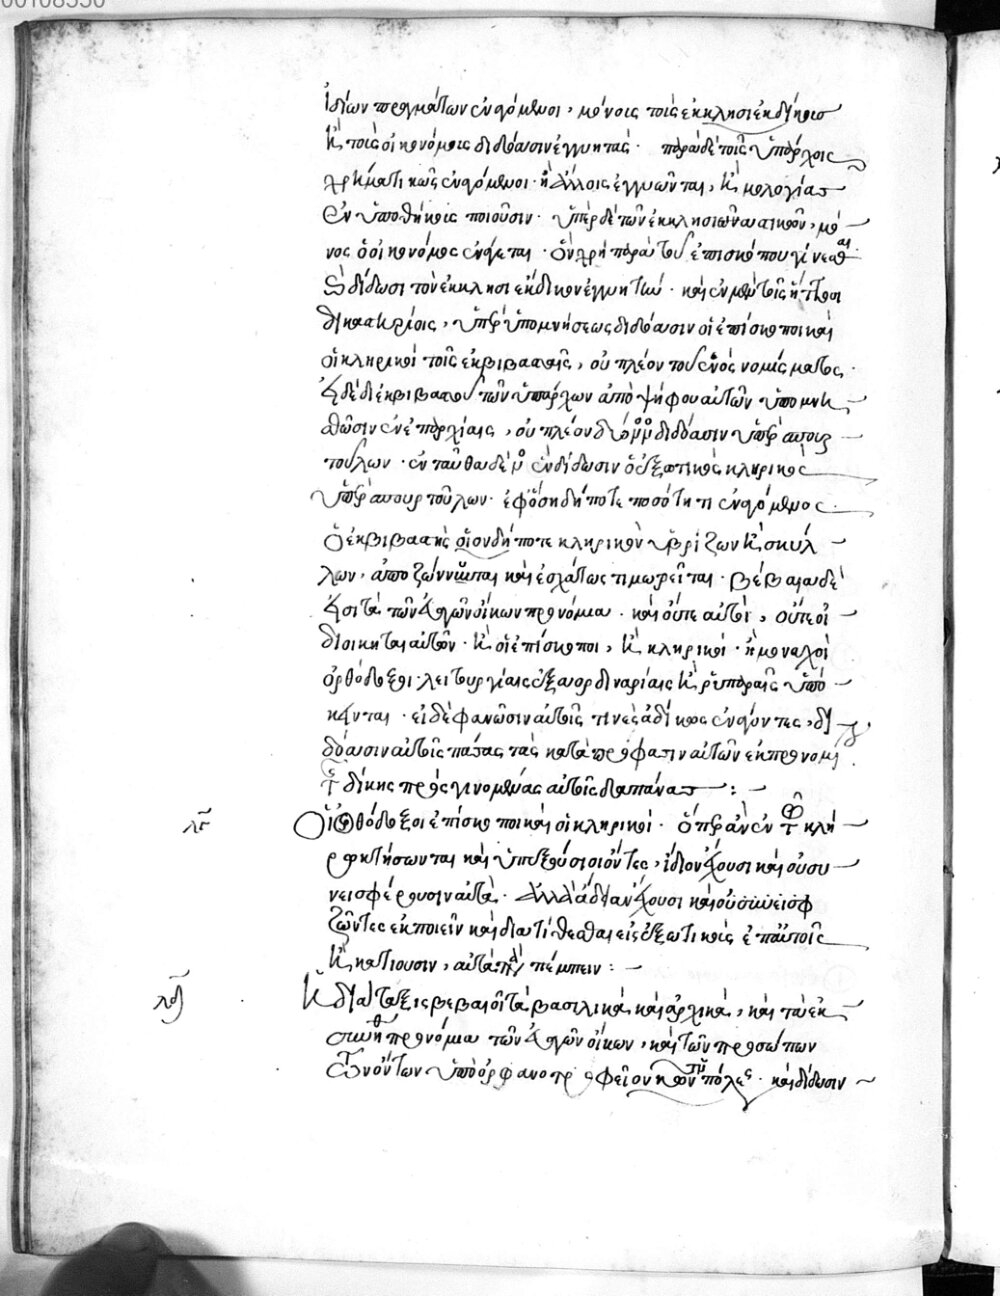 00108550
ἰδίων πραγμάτων ἐναγόμενοι, μόνοις τοῖς ἐκκλησιεκδίκοις
κ τοῖς οἰκονόμοις διδόασιν ἐγγυητάς. παρὰ δὲ τοῖς ὑπάρχοις
χρηματικῶς ἐναγόμενοι. ἢ ἄλλοις ἐγγυῶνται, κ ὁμολογίας
ἐν ὑποθήκαις ποιοῦσιν. ὑπὲρ δὲ τῶν ἐκκλησιαστικῶν, μό
νος ὁ οἰκονόμος ἐνάγεται. ὃν χρὴ παρὰ τοῦ ἐπισκόπου γίνεσθαι.
κ δίδωσι τὸν ἐκκλησιέκδικον ἐγγυητήν. καὶ ἐν μὲν τοῖς
δικαστηρίοις, ὑπὲρ ὑπομνήσεως διδόασιν οἱ ἐπίσκοποι καὶ
οἱ κληρικοὶ τοῖς ἐκβιβασταῖς, οὐ πλέον τοῦ ἑνὸς νομίσματος.
εἰ δὲ δι' ἐκβιβαστοῦ τῶν ὑπάρχων ἀπὸ ψήφου αὐτῶν ὑπομνη
σθῶσιν ἐν ἐπαρχίαις, οὐ πλέον δύο διδόασιν ὑπὲρ σπουρ
τούλων. ἐνταῦθα δὲ ἓν δίδωσιν ὁ ἐξωτικὸς κληρικὸς
ὑπὲρ σπουρτούλων. ἐφ' ὁσηδήποτε ποσότητι ἐναγόμενος.
ὁ ἐκβιβαστὴς οἱονδήποτε κληρικὸν ὑβρίζων κ σκύλ
λων, ἀποζώννυται καὶ ἐσχάτως τιμωρεῖται. βέβαια δὲ
ἔστι τὰ τῶν ἁγίων οἴκων προνόμια. καὶ οὔτε αὐτοὶ, οὔτε οἱ
διοικηταὶ αὐτῶν. κ οἱ ἐπίσκοποι, κ κληρικοὶ. ἢ μοναχοὶ
ὀρθόδοξοι λειτουργίαις ἐξαορδιναρίαις κ ῥυπαραῖς ὑπό
κεινται. εἰ δὲ φανῶσιν αὐτοῖς τινὲς ἀδίκως ἐνάγοντες, δι
δόασιν αὐτοῖς πάσας τὰς κατὰ πρόφασιν αὐτῶν ἐκ προνομί
δίκης προσγινομένας αὐτοῖς δαπάνας :
λϛ Οἱ ὀρθόδοξοι ἐπίσκοποι καὶ οἱ κληρικοὶ. ὅπερ ἂν ἐν τῷ κλή
ρῳ κτήσωνται καὶ ὑπεξούσιοι ὄντες, ἴδιον ἔχουσι καὶ οὐ συ
νεισφέρουσιν αὐτά. ἀλλὰ ἄδειαν ἔχουσι καὶ
ζῶντες ἐκποιεῖν καὶ διατίθεσθαι εἰς ἐξωτικοὺς ἐπ' αὐτοῖς
κ κατιοῦσιν, αὐτὰ πα πέμπειν :
λζ Ἡ διάταξις βεβαιοῖ τὰ βασιλικὰ καὶ ἀρχικὰ, καὶ τὰ ἐκ
συνηθ προνόμια τῶν ἁγίων οἴκων, καὶ τῶν προσώπων
τῶν ὄντων ὑπὸ ὀρφανοτροφεῖον πόλεως. καὶ δίδωσιν